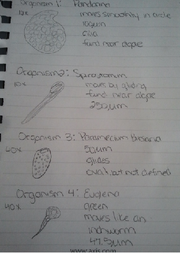 Organism 1: Pandorina
10x
moves
in circle
100µm
found near
Organism 2: Spirostomum
10x
moves by gliding
found near
250µm
Organism 3: Paramecium bursaria
40x
90µm
glides
oval but not defined
Organism 4: Euglena
40x
green
moves like an
inchworm
47.5µm